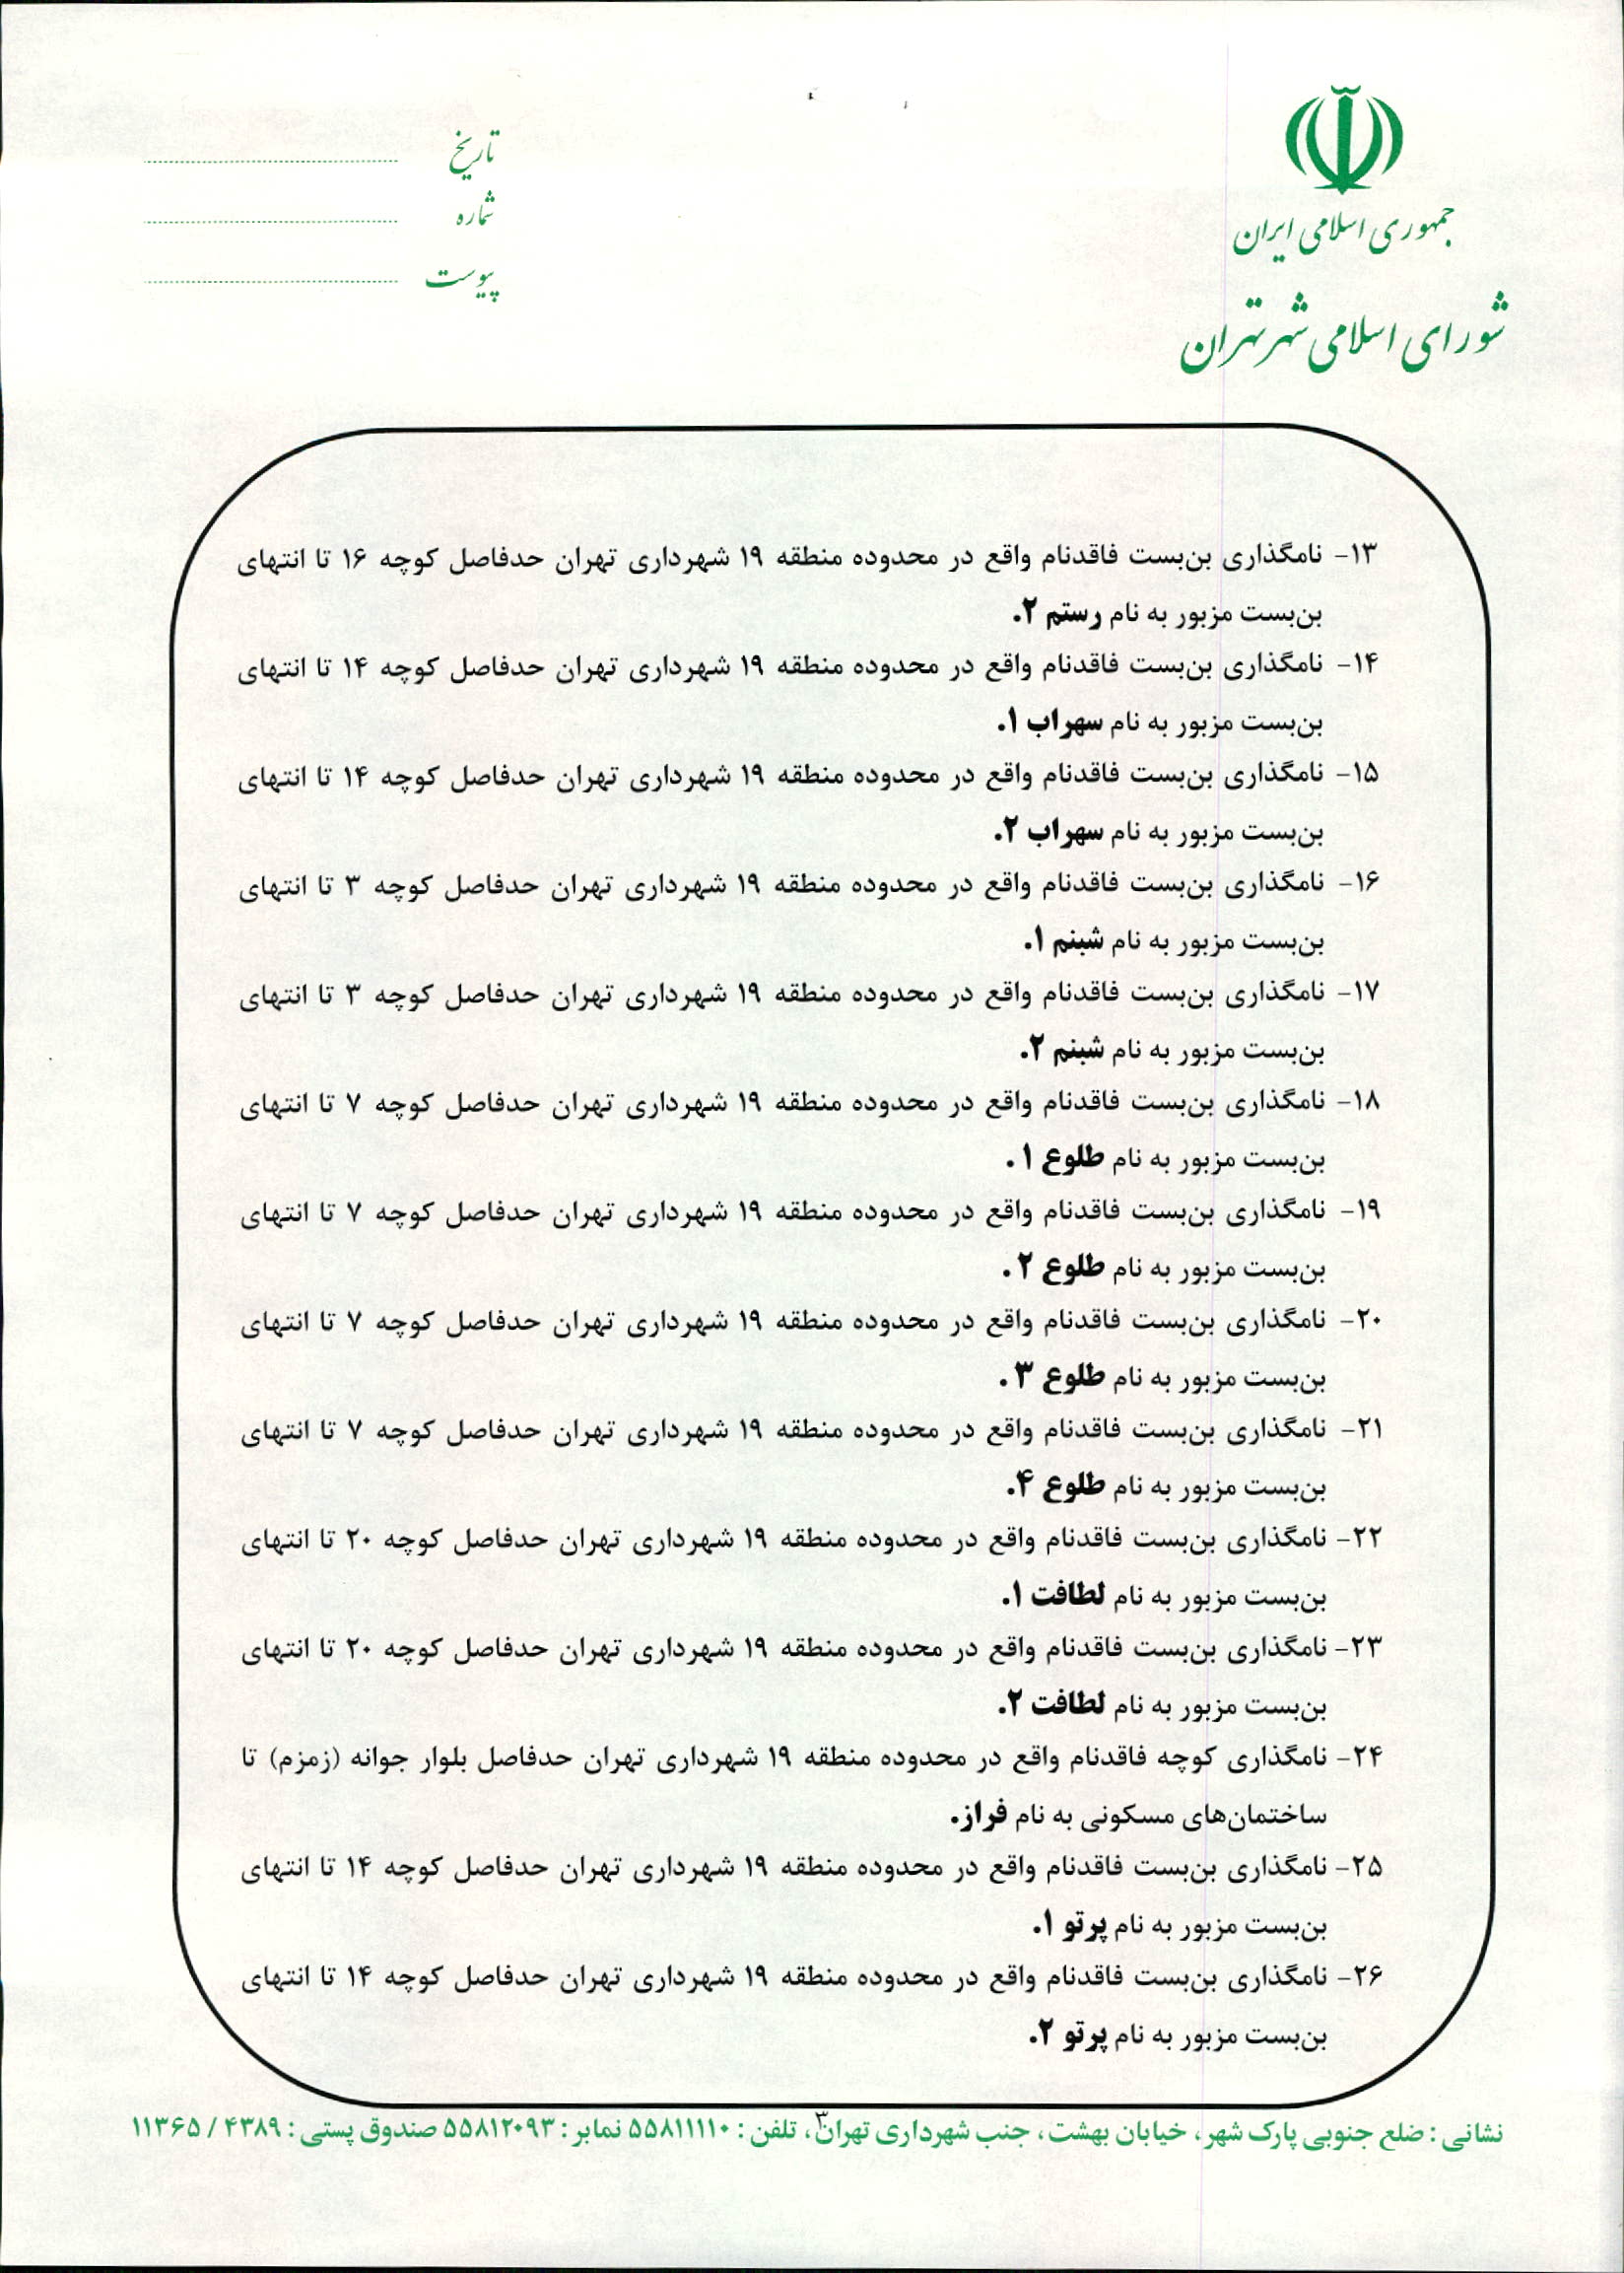 جمهوری اسلامی ایران
شورای اسلامی شهر تهران
تاریخ
شماره
پیوست
۱۳- نامگذاری بن‌بست فاقدنام واقع در محدوده منطقه ۱۹ شهرداری تهران حدفاصل کوچه ۱۶ تا انتهای
بن‌بست مزبور به نام رستم ۲.
۱۴- نامگذاری بن‌بست فاقدنام واقع در محدوده منطقه ۱۹ شهرداری تهران حدفاصل کوچه ۱۴ تا انتهای
بن‌بست مزبور به نام سهراب ۱.
۱۵- نامگذاری بن‌بست فاقدنام واقع در محدوده منطقه ۱۹ شهرداری تهران حدفاصل کوچه ۱۴ تا انتهای
بن‌بست مزبور به نام سهراب ۲.
۱۶- نامگذاری بن‌بست فاقدنام واقع در محدوده منطقه ۱۹ شهرداری تهران حدفاصل کوچه ۳ تا انتهای
بن‌بست مزبور به نام شبنم ۱.
۱۷- نامگذاری بن‌بست فاقدنام واقع در محدوده منطقه ۱۹ شهرداری تهران حدفاصل کوچه ۳ تا انتهای
بن‌بست مزبور به نام شبنم ۲.
۱۸- نامگذاری بن‌بست فاقدنام واقع در محدوده منطقه ۱۹ شهرداری تهران حدفاصل کوچه ۷ تا انتهای
بن‌بست مزبور به نام طلوع ۱ .
۱۹- نامگذاری بن‌بست فاقدنام واقع در محدوده منطقه ۱۹ شهرداری تهران حدفاصل کوچه ۷ تا انتهای
بن‌بست مزبور به نام طلوع ۲ .
۲۰- نامگذاری بن‌بست فاقدنام واقع در محدوده منطقه ۱۹ شهرداری تهران حدفاصل کوچه ۷ تا انتهای
بن‌بست مزبور به نام طلوع ۳ .
۲۱- نامگذاری بن‌بست فاقدنام واقع در محدوده منطقه ۱۹ شهرداری تهران حدفاصل کوچه ۷ تا انتهای
بن‌بست مزبور به نام طلوع ۴.
۲۲- نامگذاری بن‌بست فاقدنام واقع در محدوده منطقه ۱۹ شهرداری تهران حدفاصل کوچه ۲۰ تا انتهای
بن‌بست مزبور به نام لطافت ۱.
۲۳- نامگذاری بن‌بست فاقدنام واقع در محدوده منطقه ۱۹ شهرداری تهران حدفاصل کوچه ۲۰ تا انتهای
بن‌بست مزبور به نام لطافت ۲.
۲۴- نامگذاری کوچه فاقدنام واقع در محدوده منطقه ۱۹ شهرداری تهران حدفاصل بلوار جوانه (زمزم) تا
ساختمان‌های مسکونی به نام فراز.
۲۵- نامگذاری بن‌بست فاقدنام واقع در محدوده منطقه ۱۹ شهرداری تهران حدفاصل کوچه ۱۴ تا انتهای
بن‌بست مزبور به نام پرتو ۱.
۲۶- نامگذاری بن‌بست فاقدنام واقع در محدوده منطقه ۱۹ شهرداری تهران حدفاصل کوچه ۱۴ تا انتهای
بن‌بست مزبور به نام پرتو ۲.
۳
نشانی : ضلع جنوبی پارک شهر، خیابان بهشت، جنب شهرداری تهران، تلفن : ۵۵۸۱۱۱۱۰ نمابر : ۵۵۸۱۲۰۹۳ صندوق پستی : ۴۳۸۹ / ۱۱۳۶۵